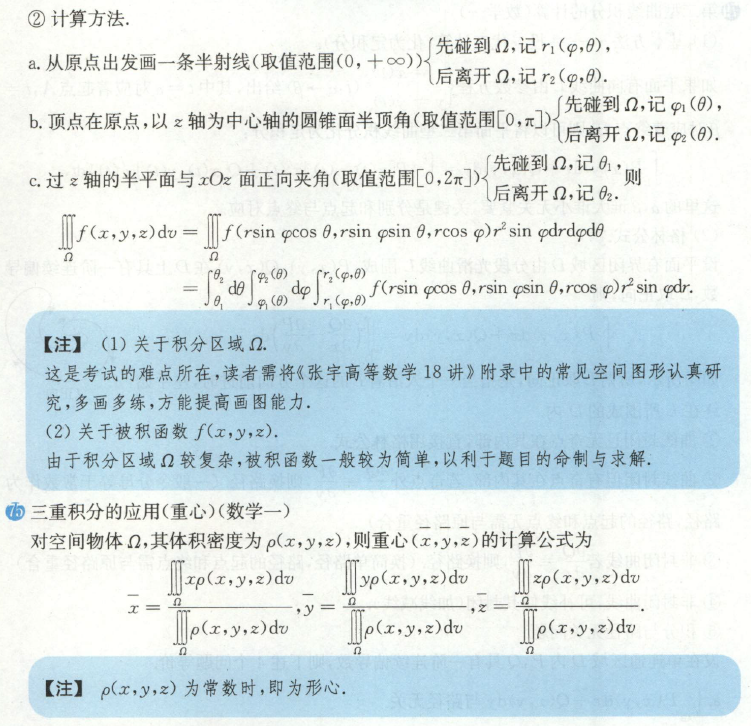 ② 计算方法.
a. 从原点出发画一条半射线(取值范围(0,+∞)){先碰到 Ω,记 r₁(φ,θ),
后离开 Ω,记 r₂(φ,θ).
b. 顶点在原点,以 z 轴为中心轴的圆锥面半顶角(取值范围[0,π]){先碰到 Ω,记 φ₁(θ),
后离开 Ω,记 φ₂(θ).
c. 过 z 轴的半平面与 xOz 面正向夹角(取值范围[0,2π]){先碰到 Ω,记 θ₁,
后离开 Ω,记 θ₂.
则
∭_Ω f(x,y,z)dv = ∭_Ω f(rsin φcos θ,rsin φsin θ,rcos φ)r² sin φdrdφdθ
= ∫_{θ₁}^{θ₂} dθ ∫_{φ₁(θ)}^{φ₂(θ)} dφ ∫_{r₁(φ,θ)}^{r₂(φ,θ)} f(rsin φcos θ,rsin φsin θ,rcos φ)r² sin φdr.
【注】 (1) 关于积分区域 Ω.
这是考试的难点所在,读者需将《张宇高等数学 18 讲》附录中的常见空间图形认真研
究,多画多练,方能提高画图能力.
(2) 关于被积函数 f(x,y,z).
由于积分区域 Ω 较复杂,被积函数一般较为简单,以利于题目的命制与求解.
75 三重积分的应用(重心)(数学一)
对空间物体 Ω,其体积密度为 ρ(x,y,z),则重心(x̄,ȳ,z̄)的计算公式为
x̄ = ∭_Ω xρ(x,y,z)dv / ∭_Ω ρ(x,y,z)dv , ȳ = ∭_Ω yρ(x,y,z)dv / ∭_Ω ρ(x,y,z)dv , z̄ = ∭_Ω zρ(x,y,z)dv / ∭_Ω ρ(x,y,z)dv .
【注】 ρ(x,y,z) 为常数时,即为形心.